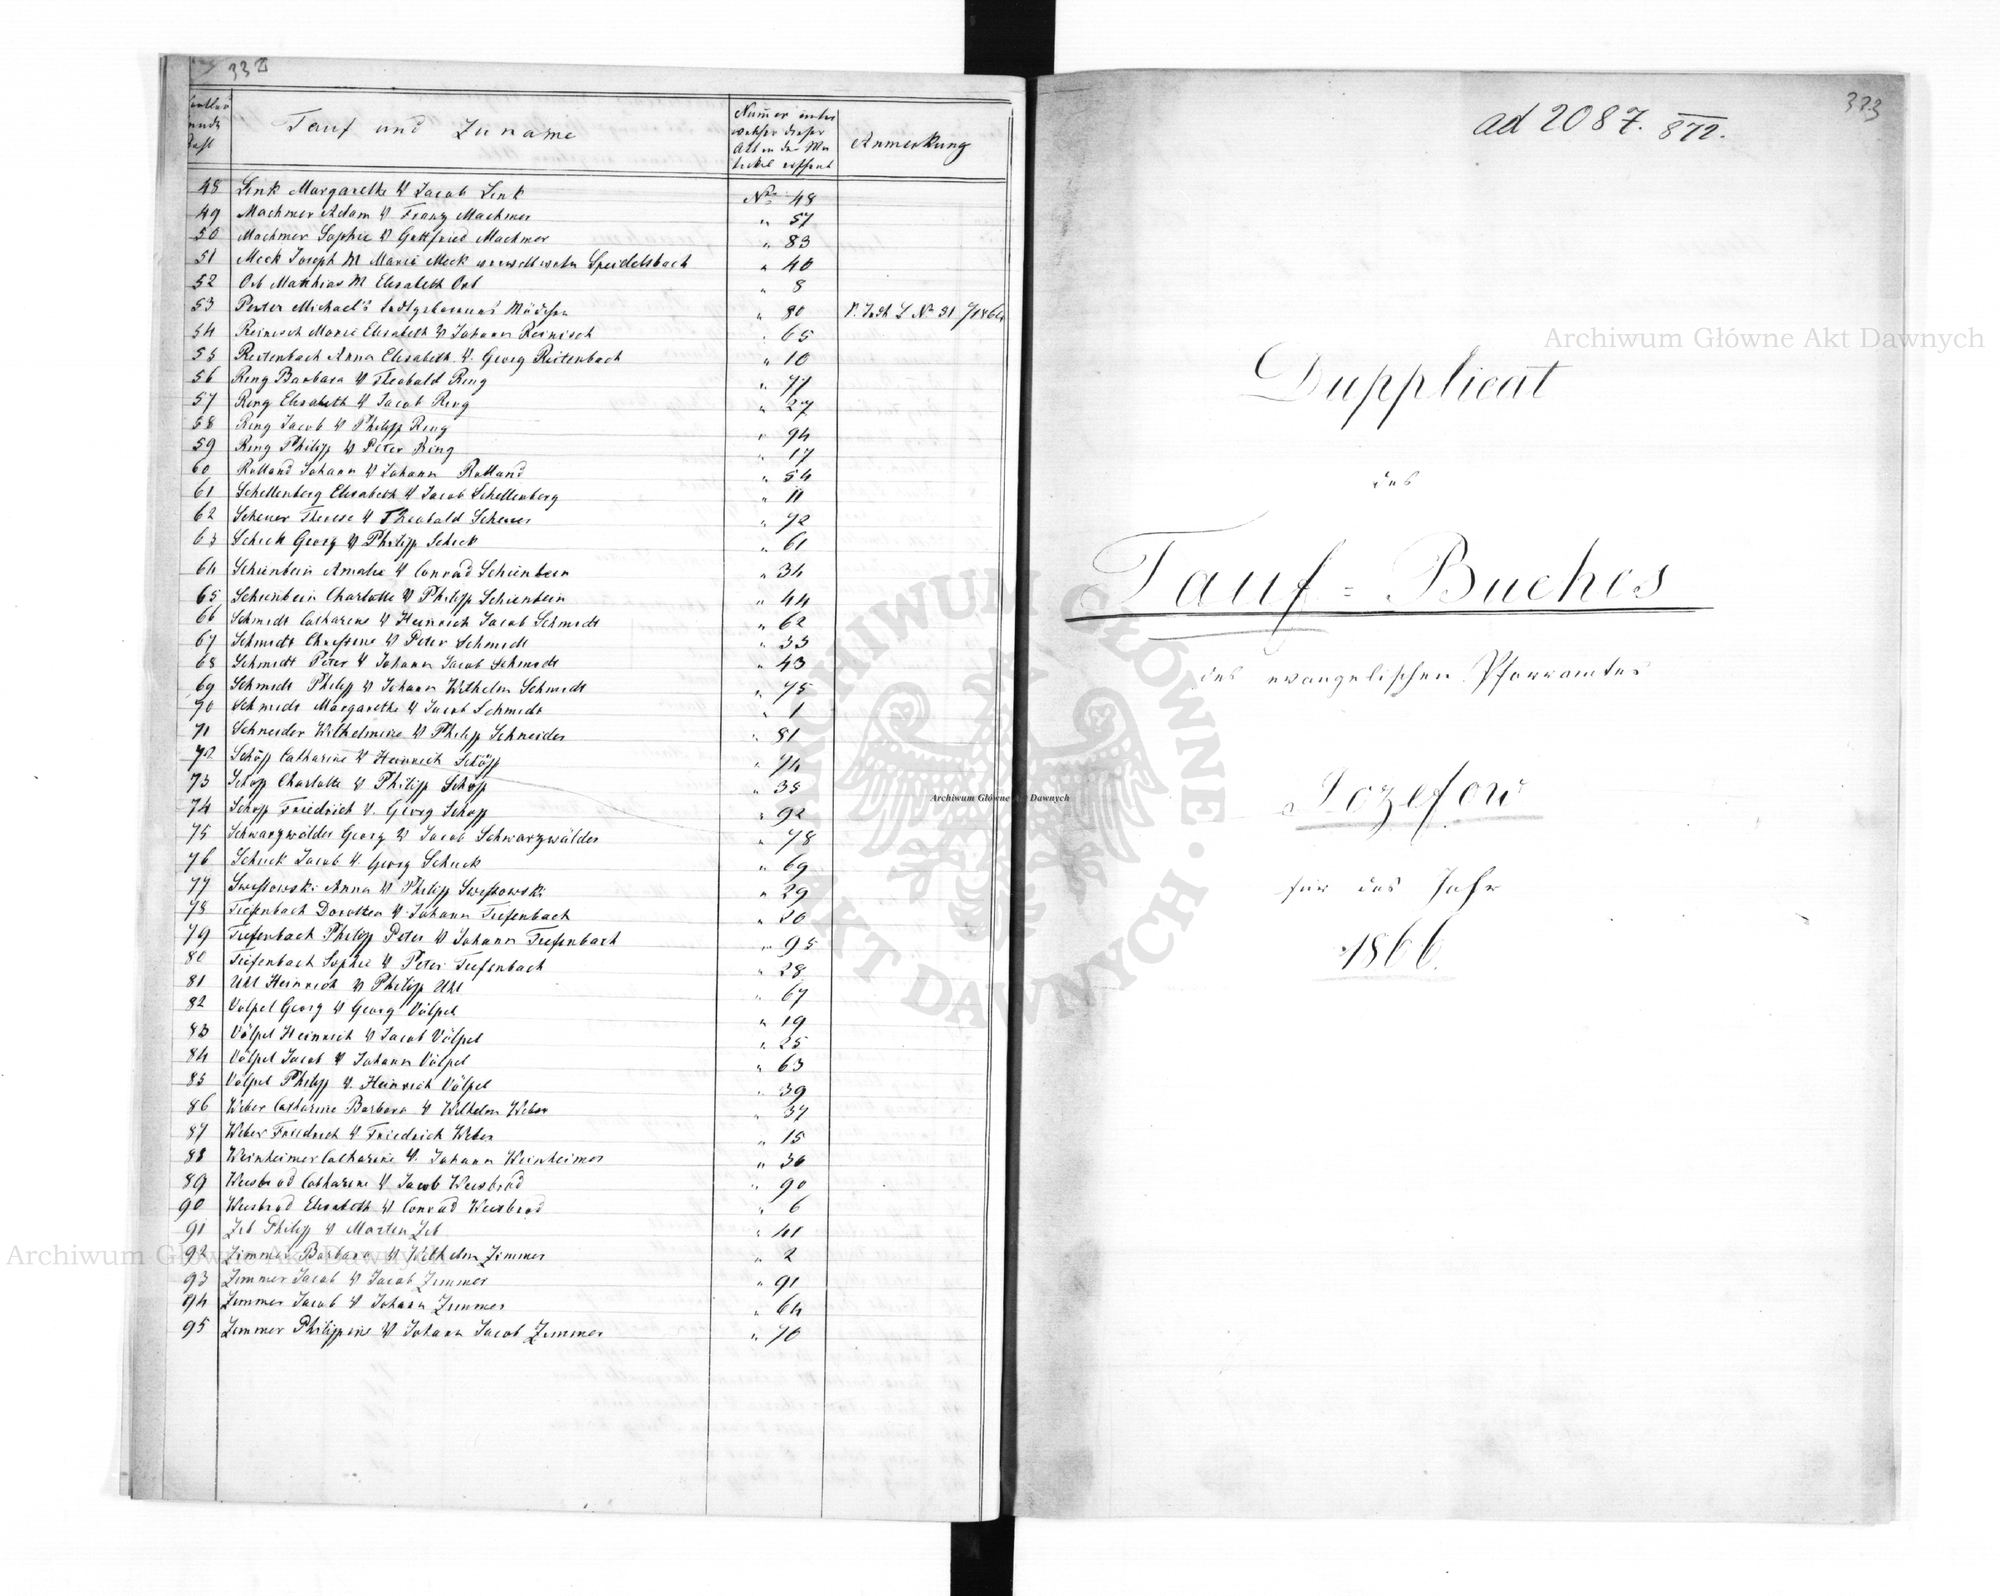 332
Tauf und Zuname
Nummer unter
welcher dieser
Act in der Ma
trikel
Anmerkung
48 Link Margarethe V Jacob Link Nro 48
49 Machmer Adam V Franz Machmer " 57
50 Machmer Sophie V Gottfried Machmer " 83
51 Meck Joseph M Maria Meck Speidelsbach " 40
52 Orb Mathias M Elisabeth Orb " 8
53 Porter Michael's todtgeborenes Mädchen " 80
54 Reinisch Marie Elisabeth V Johann Reinisch " 65
55 Reitenbach Anna Elisabeth V. Georg Reitenbach " 10
56 Ring Barbara V Theobald Ring " 77
57 Ring Elisabeth V Jacob Ring " 27
58 Ring Jacob V Philipp Ring " 94
59 Ring Philipp V Peter Ring " 17
60 Rolland Johann V Johann Rolland " 54
61 Schellenberg Elisabeth V Jacob Schellenberg " 11
62 Scheuer Therese V Theobald Scheuer " 72
63 Schick Georg V Philipp Schick " 61
64 Schienbein Amalie V Conrad Schienbein " 34
65 Schienbein Charlotte V Philipp Schienbein " 44
66 Schmidt Catharine V Heinrich Jacob Schmidt " 62
67 Schmidt Christine V Peter Schmidt " 33
68 Schmidt Peter V Johann Jacob Schmidt " 43
69 Schmidt Philipp V Johann Wilhelm Schmidt " 75
70 Schmidt Margarethe V Jacob Schmidt " 1
71 Schneider Wilhelmine V Philipp Schneider " 81
72 Schöpp Catharine V Heinrich Schöpp " 74
73 Schöpp Charlotte V Philipp Schöpp " 38
74 Schöpp Friedrich V. Georg Schöpp " 92
75 Schwarzwälder Georg V Jacob Schwarzwälder " 78
76 Schuck Jacob V. Georg Schuck " 69
77 Swistowski Anna V Philipp Swistowski " 29
78 Tiefenbach Dorothea V Johann Tiefenbach " 20
79 Tiefenbach Philipp Peter V Johann Tiefenbach " 95
80 Tiefenbach Sophie V Peter Tiefenbach " 28
81 Uhl Heinrich V Philipp Uhl " 67
82 Völpel Georg V Georg Völpel " 19
83 Völpel Heinrich V Jacob Völpel " 25
84 Völpel Jacob V Johann Völpel " 63
85 Völpel Philipp V. Heinrich Völpel " 39
86 Weber Catharine Barbara V Wilhelm Weber " 37
87 Weber Friedrich V Friedrich Weber " 15
88 Weinheimer Catharine V. Johann Weinheimer " 36
89 Weisbrod Catharine V Jacob Weisbrod " 90
90 Weisbrod Elisabeth V Conrad Weisbrod " 6
91 Zeb Philipp V Martin Zeb " 41
92 Zimmer Barbara V Wilhelm Zimmer " 2
93 Zimmer Jacob V Jacob Zimmer " 91
94 Zimmer Jacob V Johann Zimmer " 64
95 Zimmer Philippine V Johann Jacob Zimmer " 70
333
ad 2087. 872.
Dupplicat
des
Tauf = Buches
des evangelischen Pfarramtes
Jozefow
für das Jahr
1866.
Archiwum Główne Akt Dawnych
Archiwum Główne Akt Dawnych
Archiwum Główne Akt Dawnych
ARCHIWUM GŁÓWNE · AKT DAWNYCH ·